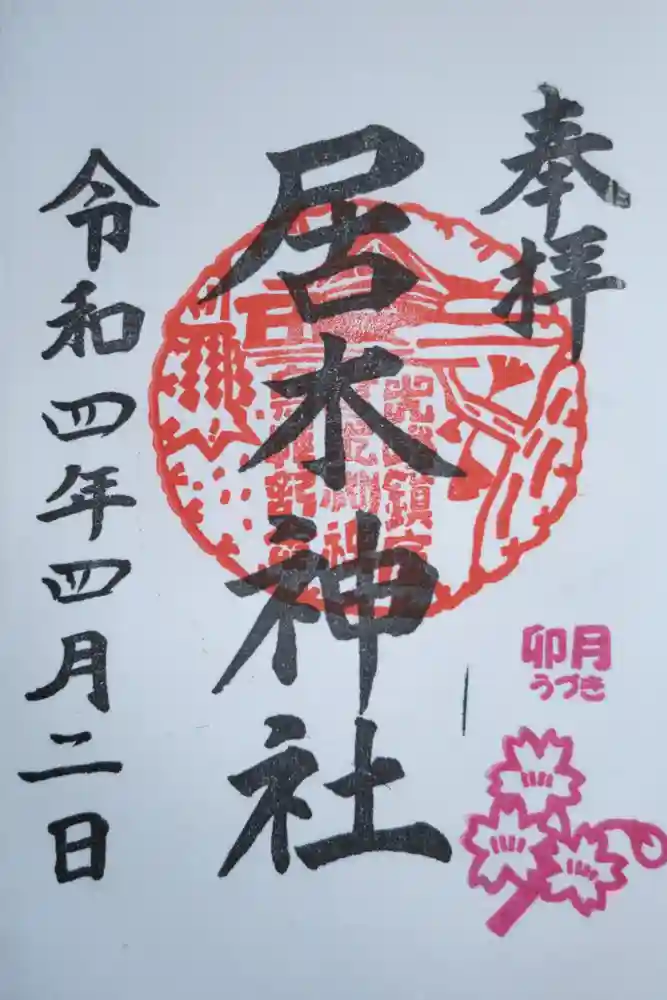 奉拝
居木神社
卯月
うづき
令和四年四月二日